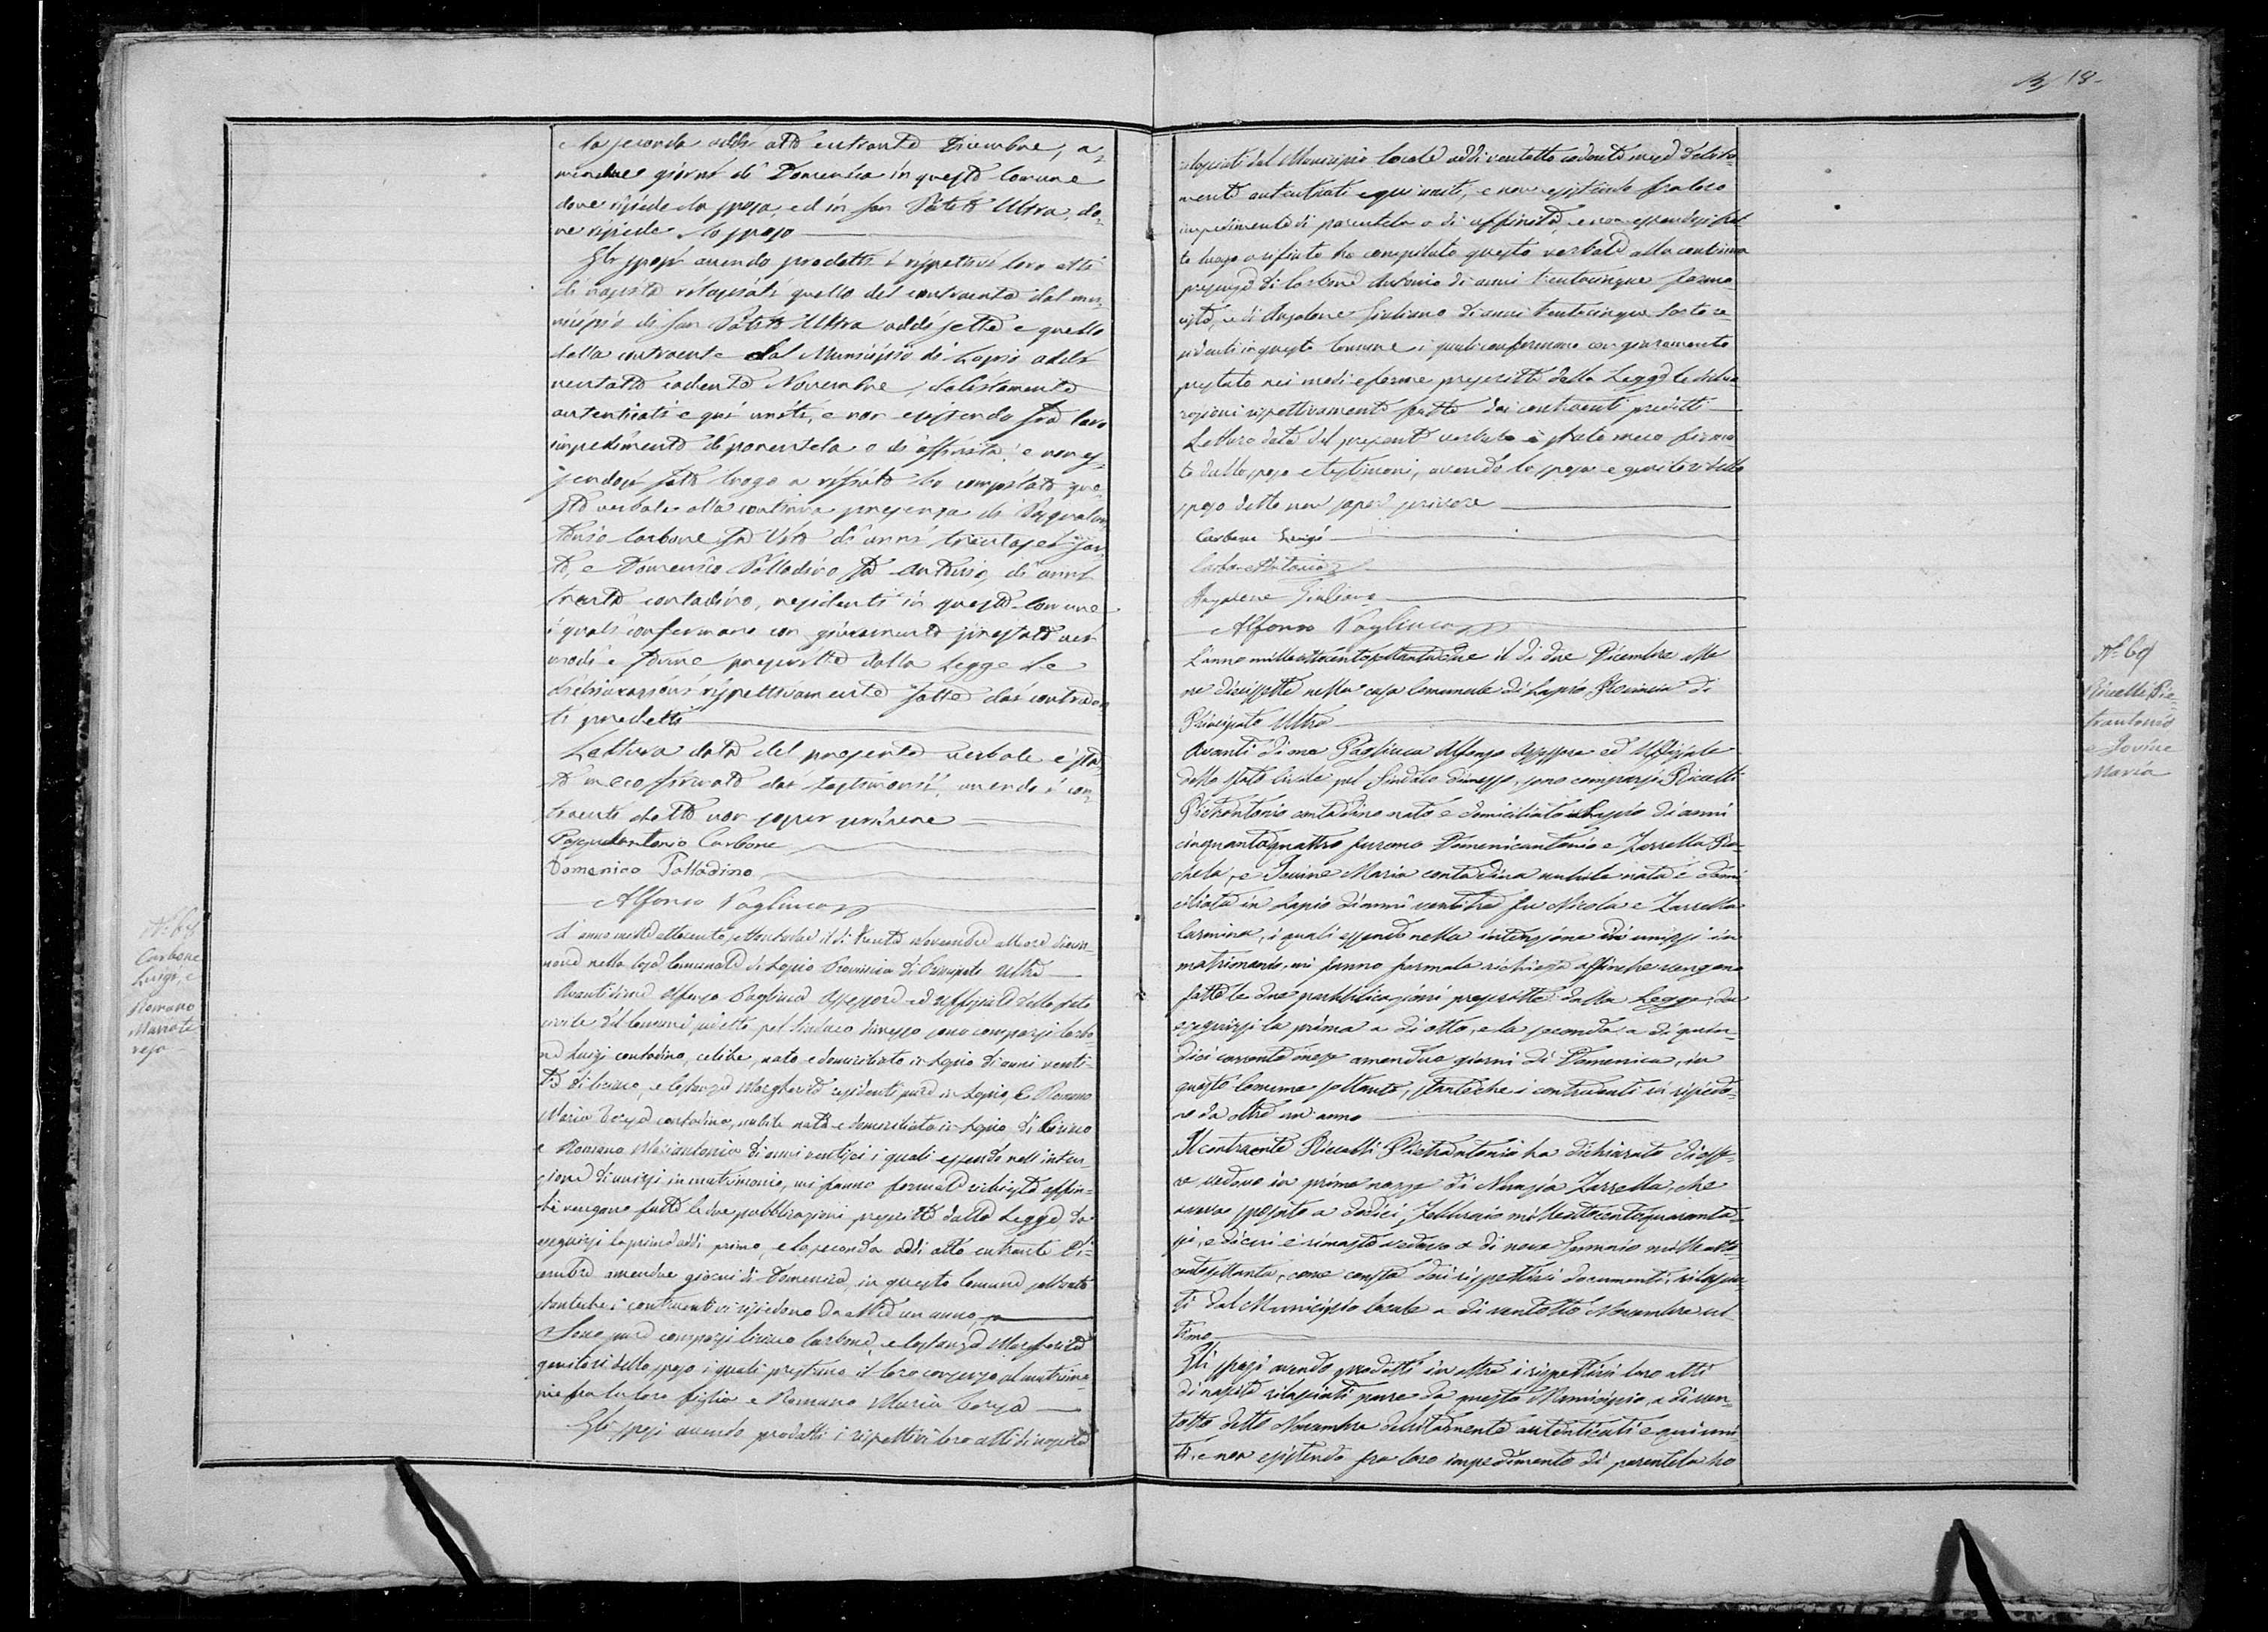 18.
e la seconda addì otto entrante Dicembre, a-
mendue giorni di Domenica in questo Comune
dove risiede la sposa, ed in San Potito Ultra, do-
ve risiede lo sposo
Gli sposi avendo prodotti i rispettivi loro atti
di nascita rilasciati quello del contraente dal mu-
nicipio di San Potito Ultra addì sette e quello
della contraente dal Municipio di Lapio addì
ventotto cadente Novembre, debitamente
autenticati e qui uniti, e non esistendo fra loro
impedimento di parentela o di affinità, e non es-
sendosi fatto luogo a rifiuto ho compilato que-
sto verbale alla continua presenza di Pasqualan-
tonio Carbone fu Vito di anni trentasei sar-
to, e Domenico Palladino fu Antonio, di anni
trenta contadino, residenti in questo Comune
i quali confermano con giuramento prestato nei
modi e forme prescritte dalla Legge le
dichiarazioni rispettivamente fatte dai contraen-
ti predetti
Lettura data del presente verbale è sta-
to meco firmato dai testimonii, avendo i con-
traenti detto non saper scrivere
Pasqualantonio Carbone
Domenico Palladino
Alfonso Pagliuca
N.° 68
Carbone
Luigi, e
Romano
Maria Te-
resa
L'anno mille ottocento settantadue il dì trenta Novembre alle ore dician-
nove nella Casa Comunale di Lapio Provincia di Principato Ultra
Avanti di me Alfonso Pagliuca Assessore ed Uffiziale dello Stato
civile del Comune suddetto pel Sindaco dimesso sono comparsi Carbo-
ne Luigi contadino, celibe, nato e domiciliato in Lapio di anni venti-
tre di Ciriaco, e Costanza Margherita residenti pure in Lapio, e Romano
Maria Teresa contadina, nubile nata e domiciliata in Lapio di Ciriaco
e Romano Mariantonia di anni ventisei i quali essendo nell'inten-
zione di unirsi in matrimonio, mi fanno formale richiesta affin-
chè vengano fatte le due pubblicazioni prescritte dalla Legge da
eseguirsi la prima addì primo, e la seconda addì otto entrante Di-
cembre amendue giorni di Domenica, in questo Comune soltanto
stanteche i contraenti vi risiedono da oltre un anno
Sono pure comparsi Ciriaco Carbone, e Costanza Margherita
genitori dello sposo i quali prestano il loro consenso al matrimo-
nio fra lu loro figlio e Romano Maria Teresa
Gli sposi avendo prodotti i rispettivi loro atti di nascita
rilasciati dal Municipio locale addì ventotto cadente mese debita-
mente autenticati e qui uniti, e non esistendo fra loro
impedimento di parentela o di affinità, e non essendosi fat-
to luogo a rifiuto ho compilato questo verbale alla continua
presenza di Carbone Antonio di anni trentacinque farma-
cista, e di Anzalone Giuliano di anni trentacinque Sarto re-
sidenti in questo Comune i quali confermano con giuramento
prestato nei modi e forme prescritte dalla Legge le dichia-
razioni rispettivamente fatte dai contraenti predetti
Lettura data del presente verbale è stato meco firma-
to dallo sposo e testimoni, avendo la sposa e genitori dello
sposo detto non saper scrivere
Carbone Luigi
Carbone Antonio
Anzalone Giuliano
Alfonso Pagliuca
N.° 69
Riccelli Pie-
trantonio
e Iovine
Maria
L'anno mille ottocento settantadue il dì due Dicembre alle
ore diciassette nella casa Comunale di Lapio Provincia di
Principato Ultra
Avanti di me Pagliuca Alfonso Assessore ed Uffiziale
dello stato Civile pel Sindaco dimesso, sono comparsi Riccelli
Pietrantonio contadino nato e domiciliato in Lapio di anni
cinquantaquattro furono Domenicantonio e Zarrella Ra-
chela, e Iovine Maria contadina nubile nata e domi-
ciliata in Lapio di anni ventitre fu Nicola e Zarrella
Carmina, i quali essendo nella intenzione di unirsi in
matrimonio, mi fanno formale richiesta affinche vengano
fatte le due pubblicazioni prescritte dalla Legge, da
eseguirsi la prima a dì otto, e la seconda a dì quin-
dici corrente mese amendue giorni di Domenica, in
questo Comune soltanto, stanteche i contraenti vi risiedo-
no da oltre un anno
Il contraente Riccelli Pietrantonio ha dichiarato di esse-
re vedovo in prime nozze di Nunzia Zarrella, che
aveva sposato a dodici Febbraio milleottocentoquaranta-
sei, e di cui è rimasto vedovo a dì nove Gennaio milleotto-
centosettanta, come consta dai rispettivi documenti, rilascia-
ti dal Municipio locale a dì ventotto Novembre ul-
timo
Gli sposi avendo prodotti in oltre i rispettivi loro atti
di nascita rilasciati pure da questo Municipio, a dì ven-
totto detto Novembre debitamente autenticati e qui uni-
ti, e non esistendo fra loro impedimento di parentela ho